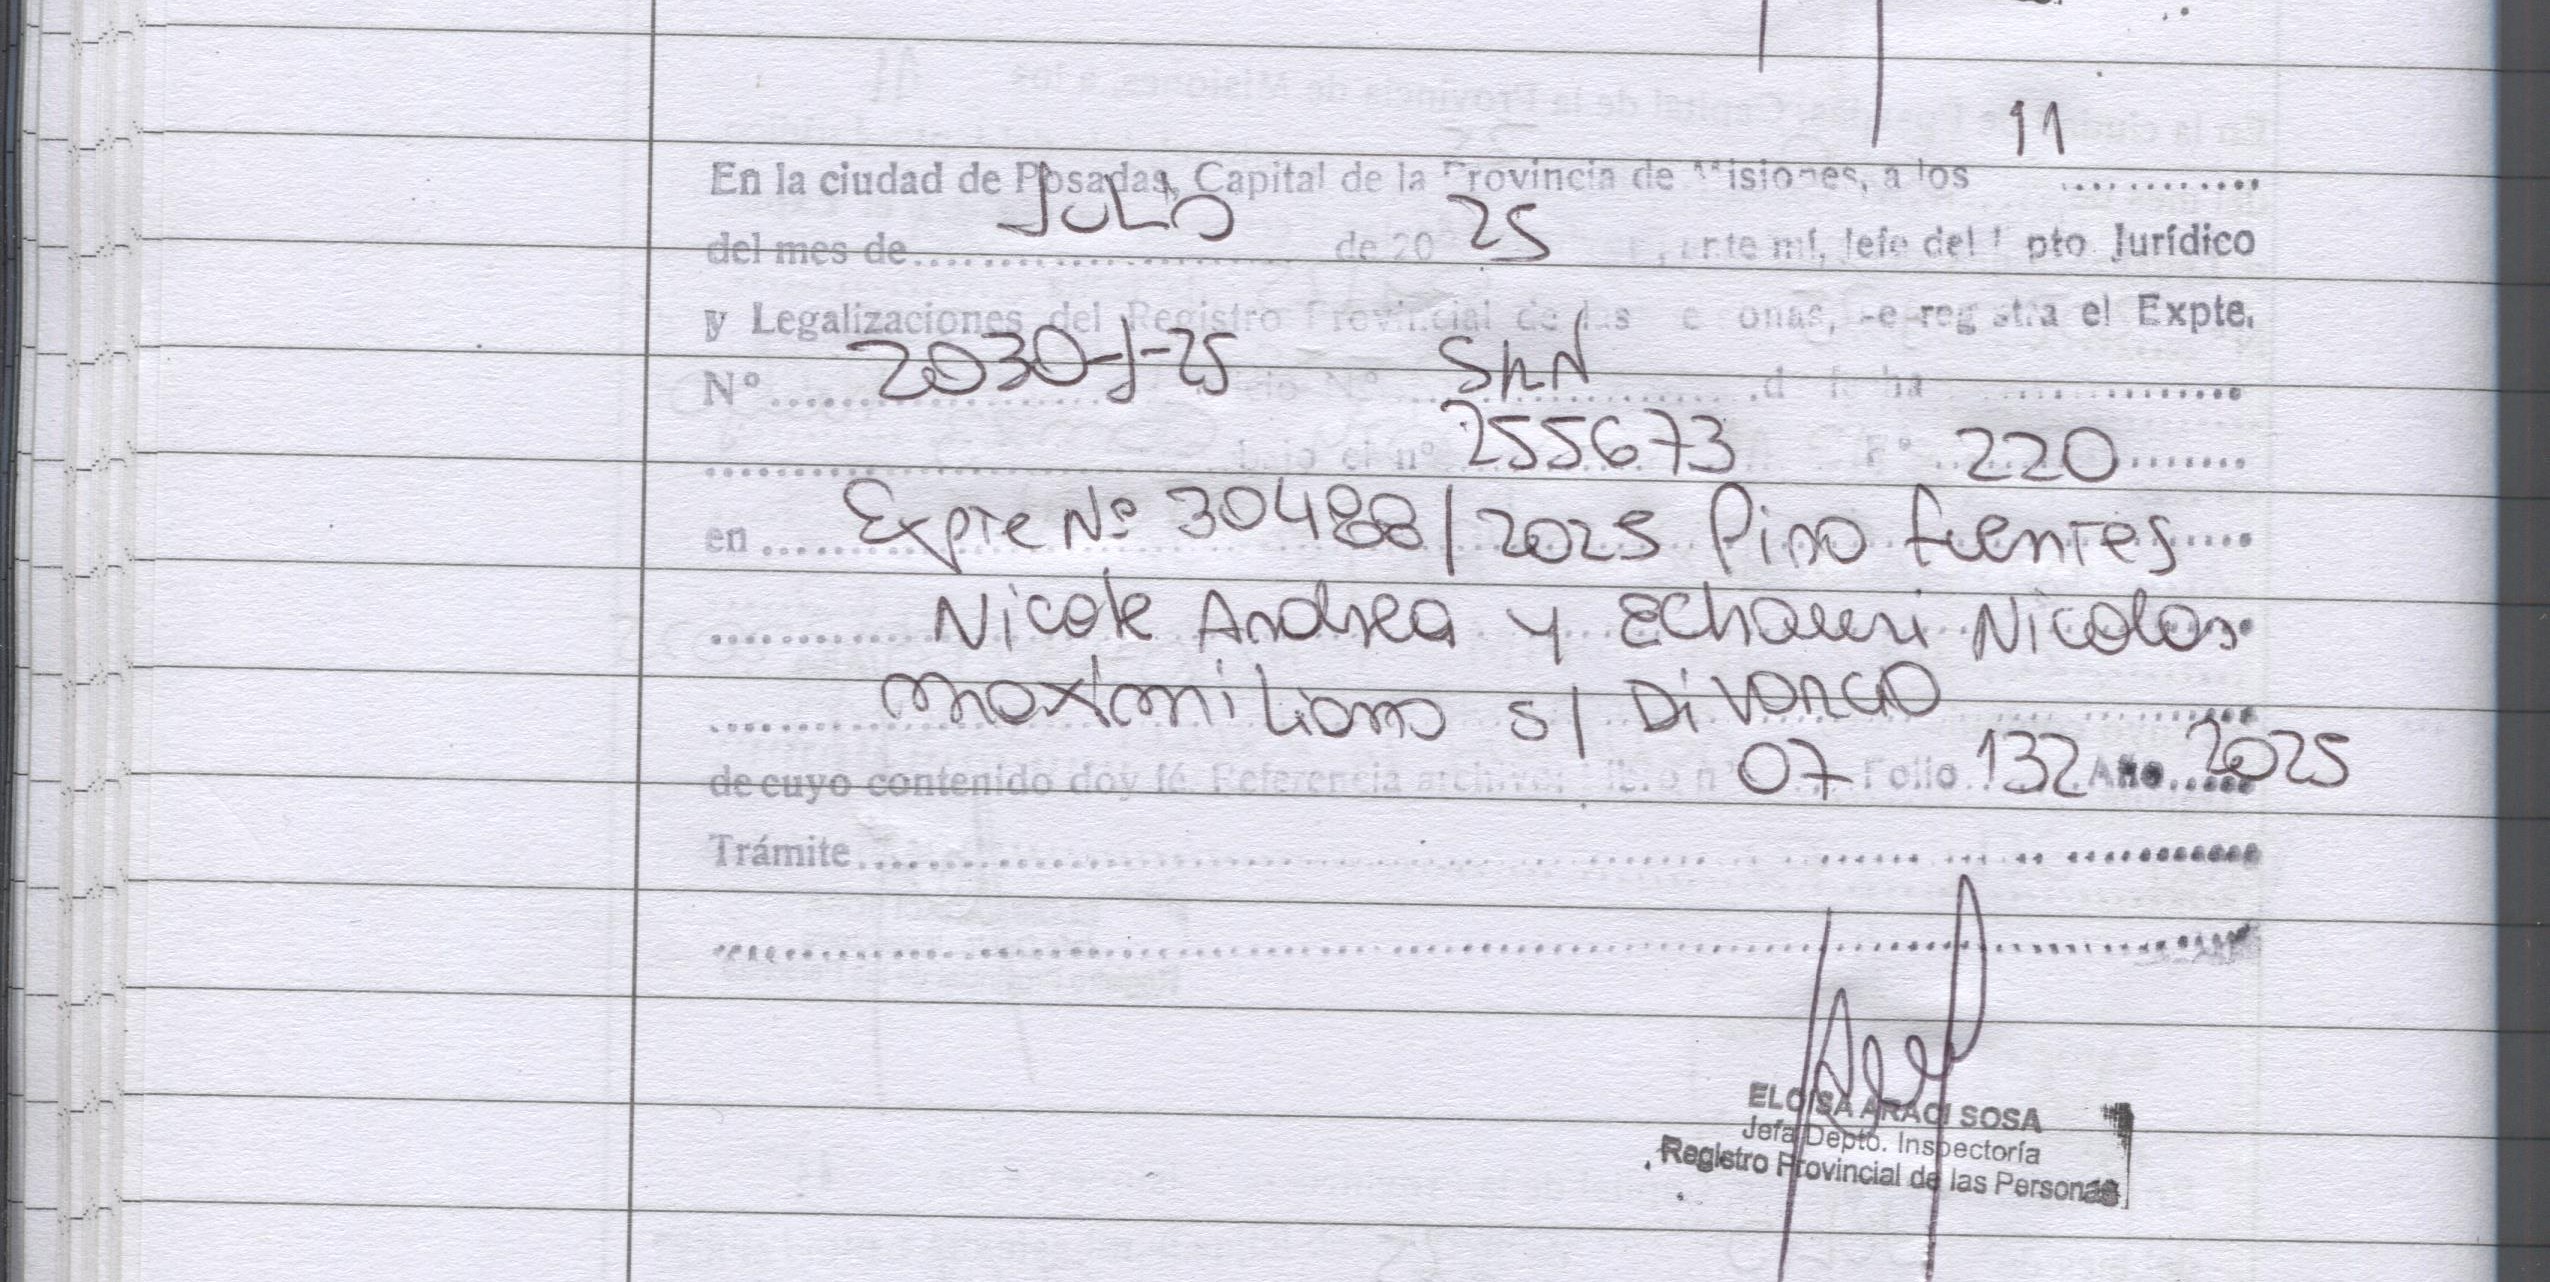 11
En la ciudad de Posadas, Capital de la Provincia de Misiones, a los ............
del mes de ........ JULIO de 20 25, ante mí, Jefe del Dpto Jurídico
y Legalizaciones del Registro Provincial de las Personas, se registra el Expte.
Nº ........ 2030-J-25 ........ S/N ........
........ bajo el nº 255673 Fº 220 ........
en ........ Expte Nº 30488/2025 Pino fuentes ....
........ Nicole Andrea y Echauri Nicolas
........ maximiliano s/ DiVORCIO ........
de cuyo contenido doy fé. Referencia archivo: Libro nº 07 Folio 132 Año 2025
Trámite ........
........
ELOISA ARACI SOSA
Jefa Depto. Inspectoría
Registro Provincial de las Personas